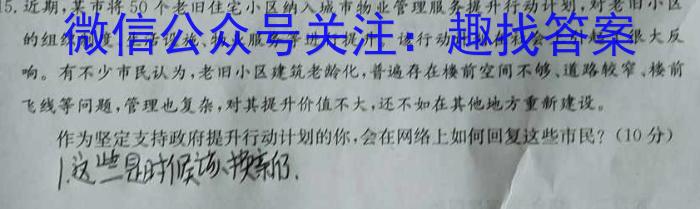 15. 近期,某市将50个老旧住宅小区纳入城市物业管理服务提升行动计划,对老旧小区
的组织
微信公众号关注:趣找答案
很大反
响。有不少市民认为,老旧小区建筑老龄化,普遍存在楼前空间不够、道路较窄、楼前
飞线等问题,管理也复杂,对其提升价值不大,还不如在其他地方重新建设。
作为坚定支持政府提升行动计划的你,会在网络上如何回复这些市民?(10分)
1.这些是时候该换新的.